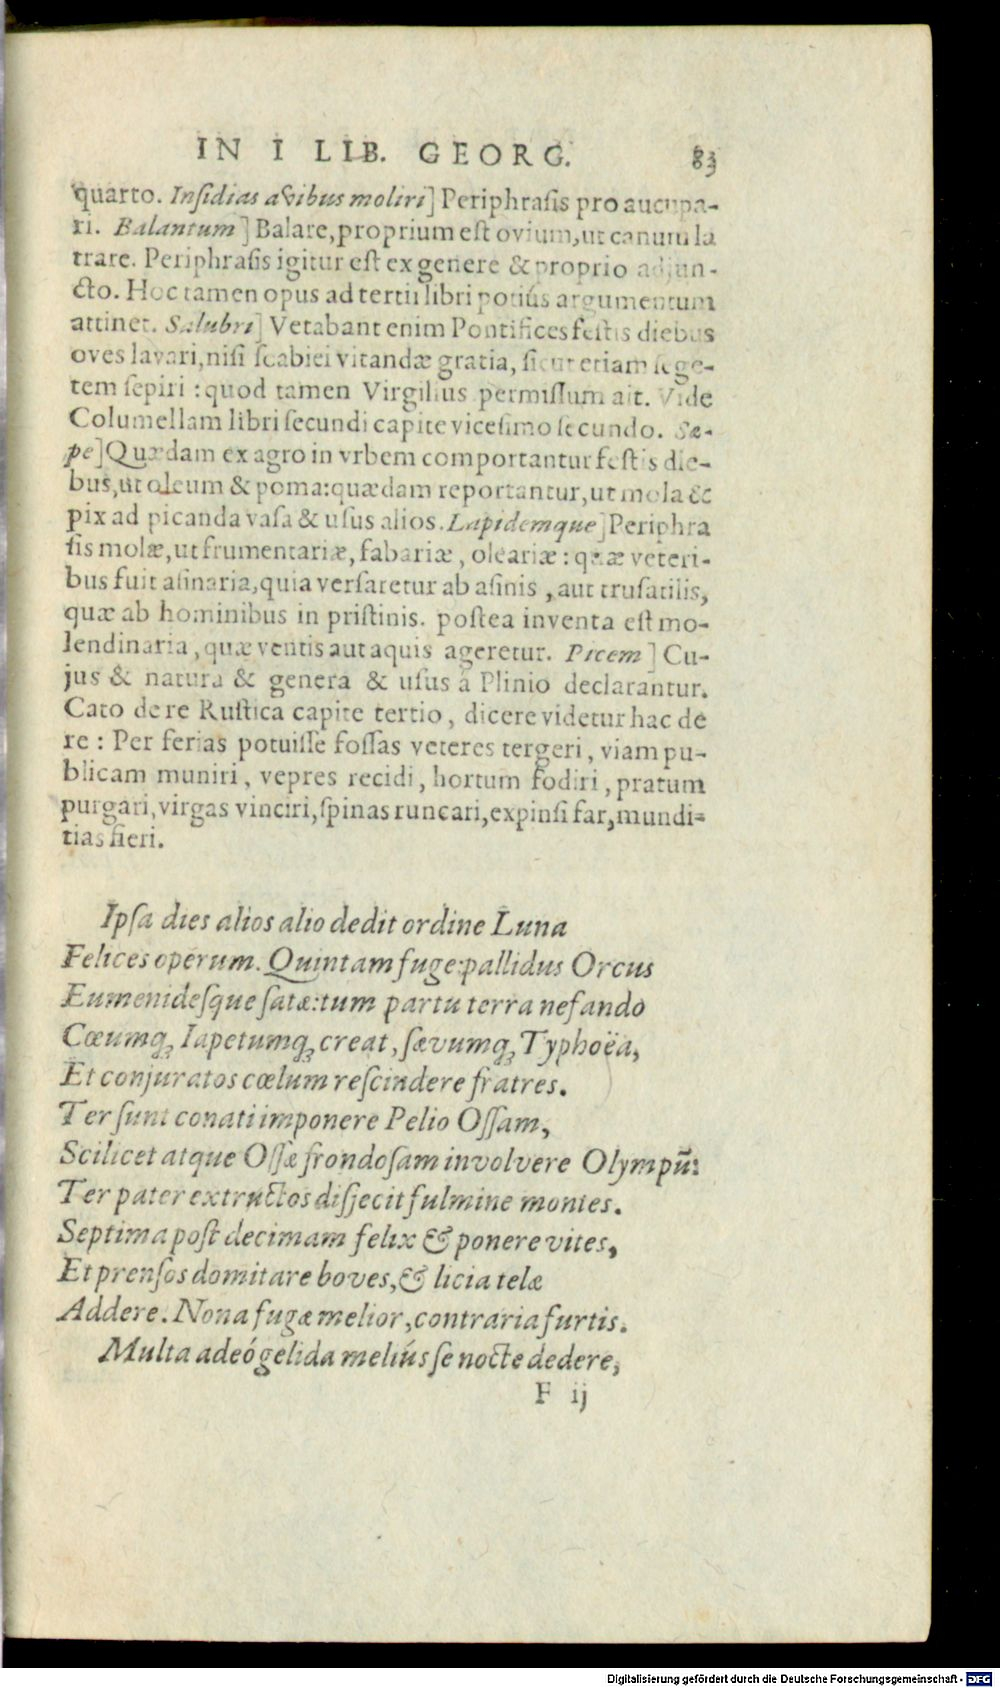 IN I LIB. GEORG. 83
quarto. Inſidias avibus moliri] Periphraſis pro aucupa-
ri. Balantum] Balare, proprium eſt ovium, ut canum la
trare. Periphraſis igitur eſt ex genere & proprio adjun-
cto. Hoc tamen opus ad tertii libri potiús argumentum
attinet. Salubri] Vetabant enim Pontifices feſtis diebus
oves lavari, niſi ſcabiei vitandæ gratia, ſicut etiam ſege-
tem ſepiri : quod tamen Virgilius permiſſum ait. Vide
Columellam libri ſecundi capite viceſimo ſecundo. Sæ-
pe] Quædam ex agro in vrbem comportantur feſtis die-
bus, ut oleum & poma: quædam reportantur, ut mola &
pix ad picanda vaſa & uſus alios. Lapidemque] Periphra
ſis molæ, ut frumentariæ, fabariæ, oleariæ : quæ veteri-
bus fuit aſinaria, quia verſaretur ab aſinis, aut truſatilis,
quæ ab hominibus in priſtinis. poſtea inventa eſt mo-
lendinaria, quæ ventis aut aquis ageretur. Picem] Cu-
jus & natura & genera & uſus á Plinio declarantur.
Cato de re Ruſtica capite tertio, dicere videtur hac de
re : Per ferias potuiſſe foſſas veteres tergeri, viam pu-
blicam muniri, vepres recidi, hortum fodiri, pratum
purgari, virgas vinciri, ſpinas runcari, expinſi far, mundi-
tias fieri.
Ipſa dies alios alio dedit ordine Luna
Felices operum. Quintam fuge: pallidus Orcus
Eumenideſque ſatæ: tum partu terra nefando
Cœumq; Iapetumq; creat, ſævumq; Typhoëa,
Et conjuratos cœlum reſcindere fratres.
Ter ſunt conati imponere Pelio Oſſam,
Scilicet atque Oſſæ frondoſam involvere Olympū:
Ter pater extructos disjecit fulmine montes.
Septima poſt decimam felix & ponere vites,
Et prenſos domitare boves, & licia telæ
Addere. Nona fugæ melior, contraria furtis.
Multa adeó gelida meliús ſe nocte dedere,
F ij
Digitalisierung gefördert durch die Deutsche Forschungsgemeinschaft - DFG